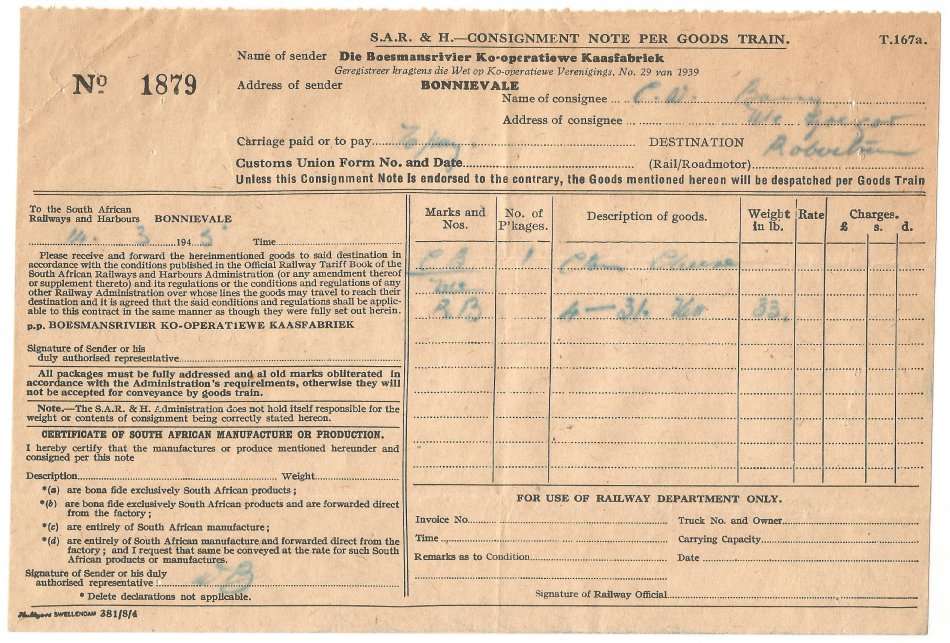 S.A.R. & H.—CONSIGNMENT NOTE PER GOODS TRAIN.
T.167a.
Name of sender Die Boesmansrivier Ko-operatiewe Kaasfabriek
Geregistreer kragtens die Wet op Ko-operatiewe Verenigings, No. 29 van 1939
No 1879
Address of sender BONNIEVALE
Name of consignee C.W.
Address of consignee
Carriage paid or to pay To pay. DESTINATION Robertson
Customs Union Form No. and Date (Rail/Roadmotor)
Unless this Consignment Note Is endorsed to the contrary, the Goods mentioned hereon will be despatched per Goods Train
To the South African
Railways and Harbours BONNIEVALE
14. 3 1945 Time
Please receive and forward the hereinmentioned goods to said destination in
accordance with the conditions published in the Official Railway Tariff Book of the
South African Railways and Harbours Administration (or any amendment thereof
or supplement thereto) and its regulations or the conditions and regulations of any
other Railway Administration over whose lines the goods may travel to reach their
destination and it is agreed that the said conditions and regulations shall be applic-
able to this contract in the same manner as though they were fully set out herein.
p.p. BOESMANSRIVIER KO-OPERATIEWE KAASFABRIEK
Signature of Sender or his
duly authorised representative
All packages must be fully addressed and al old marks obliterated in
accordance with the Administration's requirelments, otherwise they will
not be accepted for conveyance by goods train.
Note.—The S.A.R. & H. Administration does not hold itself responsible for the
weight or contents of consignment being correctly stated hereon.
CERTIFICATE OF SOUTH AFRICAN MANUFACTURE OR PRODUCTION.
I hereby certify that the manufactures or produce mentioned hereunder and
consigned per this note
Description Weight
*(a) are bona fide exclusively South African products;
*(b) are bona fide exclusively South African products and are forwarded direct
from the factory;
*(c) are entirely of South African manufacture;
*(d) are entirely of South African manufacture and forwarded direct from the
factory; and I request that same be conveyed at the rate for such South
African products or manufactures.
Signature of Sender or his duly
authorised representative
* Delete declarations not applicable.
SWELLENDAM 381/8/4
Marks and Nos. No. of P'kages. Description of goods. Weight in lb. Rate Charges. £ s. d.
C B 1 Cheese
RB 4 33.
FOR USE OF RAILWAY DEPARTMENT ONLY.
Invoice No. Truck No. and Owner
Time Carrying Capacity
Remarks as to Condition Date
Signature of Railway Official